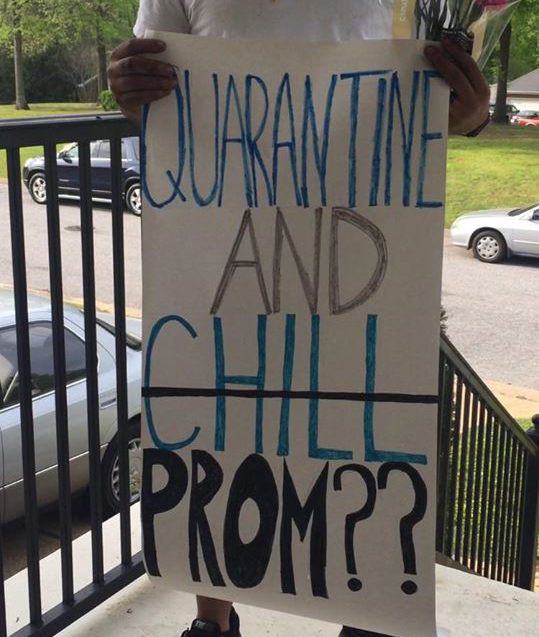 QUARANTINE
AND
CHILL
PROM??